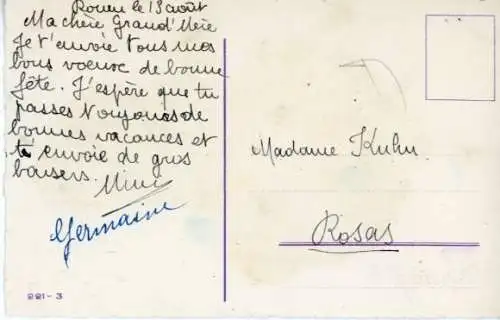 Rouen le 13 août
Ma chère Grand'Mère
Je t'envoie tous mes
bons voeux de bonne
fête. J'espère que tu
passes toujours de
bonnes vacances et
t'envoie de gros
baisers. Mimi
Germaine
Madame Kuhn.
Rosas
221-3